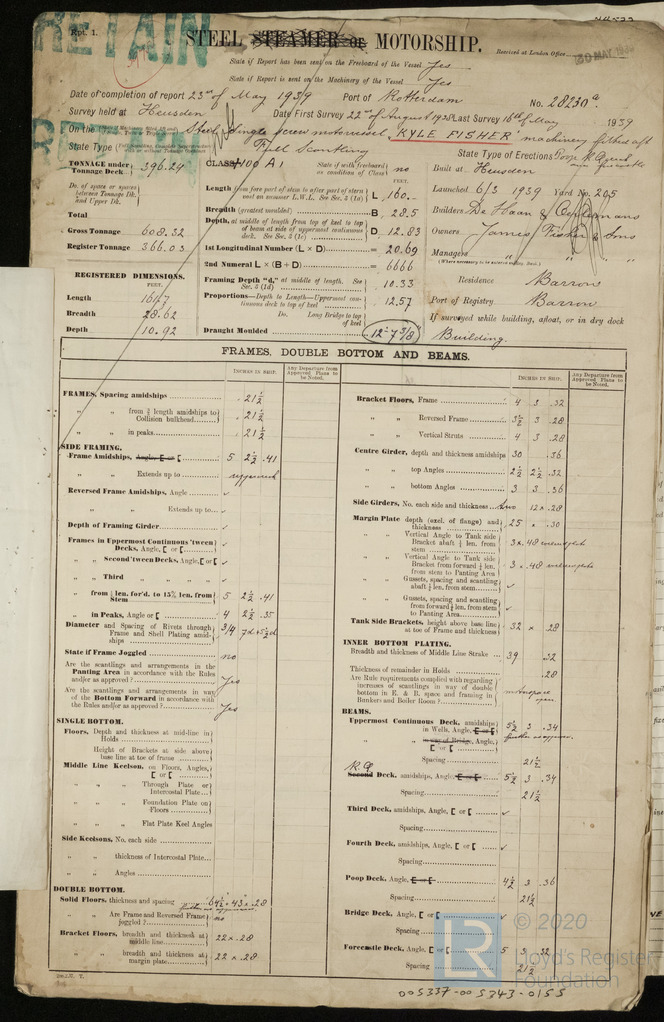 Rpt. 1.
RETAIN
STEEL STEAMER OR MOTORSHIP.
Received at London Office
State if Report has been sent on the Freeboard of the Vessel Yes
State if Report is sent on the Machinery of the Vessel Yes
Date of completion of report 23rd of May 1939 Port of Rotterdam No. 28230a
Survey held at Heusden Date First Survey 22nd of August 1938 Last Survey 16th of May 1939
On the Steel Single screw motorvessel "KYLE FISHER" machinery fitted aft
State Type Full Scantling
State Type of Erections Poop R. Qrdeck
TONNAGE under Tonnage Deck 396.29
Do. of space or spaces between Tonnage Dk. and Upper Dk.
Total
Gross Tonnage 608.32
Register Tonnage 366.03
REGISTERED DIMENSIONS.
FEET.
Length 161.7
Breadth 28.62
Depth 10.92
CLASS 100 A1
State if with freeboard as condition of Class no
Length from fore part of stem to after part of stern post on summer L.W.L. See Sec. 3 (1a) L 160.
Breadth (greatest moulded) B 28.5
Depth, at middle of length from top of keel to top of beam at side of uppermost continuous deck. See Sec. 3 (1c) D 12.83
1st Longitudinal Number (L × D) = 20.69
2nd Numeral L × (B + D) = 6666
Framing Depth "d," at middle of length. See Sec. 3 (1d) 10.33
Proportions—Depth to Length—Uppermost continuous deck to top of keel 12.57
Do. Long Bridge to top of keel
Draught Moulded 12'-7 3/8"
Built at Heusden
Launched 6/3 1939 Yard No. 205
Builders De Haan & Oerlemans
Owners James Fisher & Sons
Managers " "
(Where necessary to be entered in Reg. Book.)
Residence Barrow
Port of Registry Barrow
If surveyed while building, afloat, or in dry dock
Building.
FRAMES, DOUBLE BOTTOM AND BEAMS.
INCHES IN SHIP.
Any Departure from Approved Plans to be Noted.
FRAMES, Spacing amidships 21½
" " from ¾ length amidships to Collision bulkhead 21½
" " in peaks 21½
SIDE FRAMING.
Frame Amidships, Angle, [ or [ 5 2½ .41
" " Extends up to approved
Reversed Frame Amidships, Angle ✓
" " Extends up to ✓
Depth of Framing Girder ✓
Frames in Uppermost Continuous 'tween Decks, Angle, [ or [ ✓
" " Second 'tween Decks, Angle, [ or [ ✓
" " Third " " " " ✓
" " from ¼ len. for'd. to 15% len. from Stem 5 2½ .41
" " in Peaks, Angle or [ 4 2½ .35
Diameter and Spacing of Rivets through Frame and Shell Plating amidships 3/4 7d+5½d
State if Frame Joggled no
Are the scantlings and arrangements in the Panting Area in accordance with the Rules and/or as approved? Yes
Are the scantlings and arrangements in way of the Bottom Forward in accordance with the Rules and/or as approved? Yes
SINGLE BOTTOM.
Floors, Depth and thickness at mid-line in Holds
Height of Brackets at side above base line at toe of frame
Middle Line Keelson, on Floors, Angles, [ or [
" " Through Plate or Intercostal Plate
" " Foundation Plate on Floors
" " Flat Plate Keel Angles
Side Keelsons, No. each side
" " thickness of Intercostal Plate
" " Angles
DOUBLE BOTTOM.
Solid Floors, thickness and spacing 64½+43×.28
" " Are Frame and Reversed Frame joggled? no
Bracket Floors, breadth and thickness at middle line 22×.28
" " breadth and thickness at margin plate 22×.28
Bracket Floors, Frame 4 3 .32
" " Reversed Frame 3½ 3 .28
" " Vertical Struts 4 3 .28
Centre Girder, depth and thickness amidships 30 .36
" " top Angles 2½ 2½ .32
" " bottom Angles 3 3 .36
Side Girders, No. each side and thickness 12×.28
Margin Plate depth (excl. of flange) and thickness 25 × .30
" " Vertical Angle to Tank side Bracket abaft ¼ len. from stem 3×.48
" " Vertical Angle to Tank side Bracket from forward ¼ len. from stem to Panting Area 3×.48
" " Gussets, spacing and scantling abaft ¼ len. from stem ✓
" " Gussets, spacing and scantling from forward ¼ len. from stem to Panting Area ✓
Tank Side Brackets, height above base line at toe of Frame and thickness 32 × .28
INNER BOTTOM PLATING.
Breadth and thickness of Middle Line Strake 39 .32
Thickness of remainder in Holds .28
Are Rule requirements complied with regarding increases of scantlings in way of double bottom in E. & B. space and framing in Bunkers and Boiler Room?
BEAMS.
Uppermost Continuous Deck, amidships in Wells, Angle, [ or [ 5½ 3 .34
" " in way of Bridge, Angle, [ or [
Spacing 21½
R.Q. Second Deck, amidships, Angle, [ or [ 5½ 3 .34
Spacing 21½
Third Deck, amidships, Angle, [ or [ ✓
Spacing
Fourth Deck, amidships, Angle, [ or [ ✓
Spacing
Poop Deck, Angle, [ or [ 4½ 3 .36
Spacing 21½
Bridge Deck, Angle, [ or [
Spacing
Forecastle Deck, Angle, [ or [ 5 3 .32
Spacing 21½
© 2020
Lloyd's Register
Foundation
005337-005343-0155